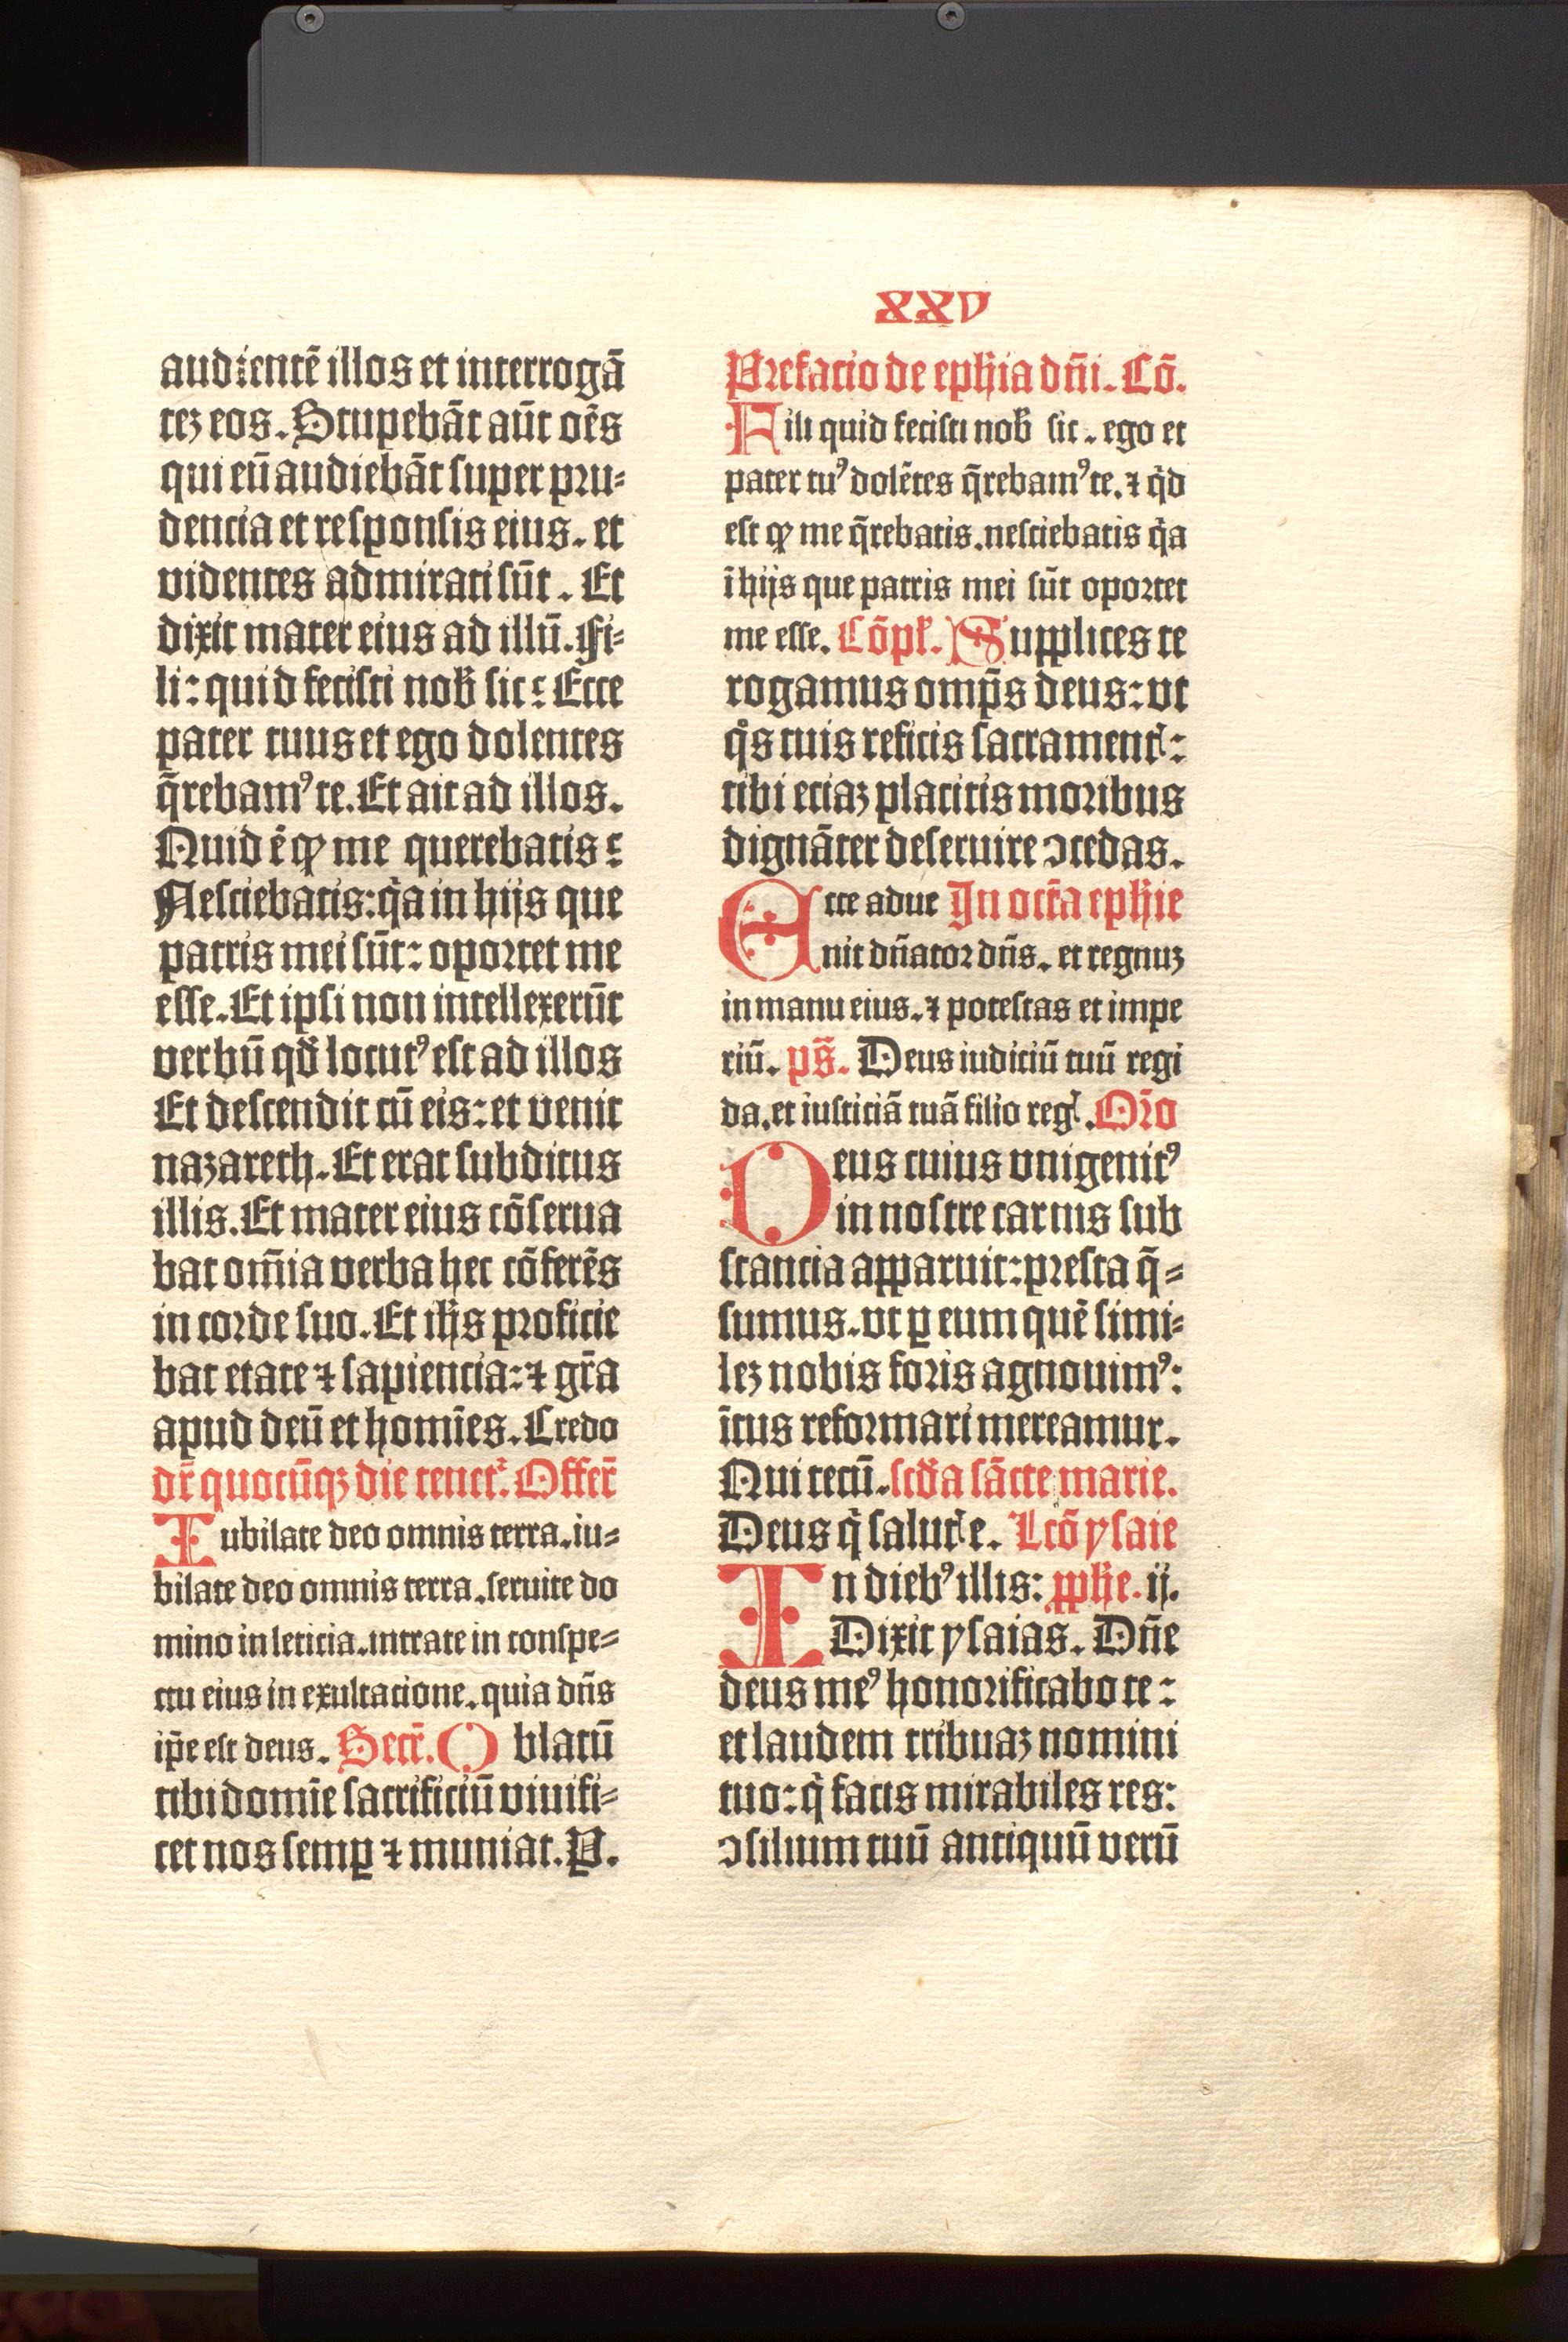 xxv
audientē illos et interrogā
tez eos. Stupebāt aūt oēs
qui eū audiebāt super pru⸗
dencia et responsis eius. et
videntes admirati sūt. Et
dixit mater eius ad illū. Fi⸗
li: quid fecisti nob̄ sic: Ecce
pater tuus et ego dolentes
q̄rebamꝰ te. Et ait ad illos.
Quid ē ꝙ me querebatis:
Nesciebatis: q̄a in hijs que
patris mei sūt: oportet me
esse. Et ipsi non intellexerūt
verbū qđ locutꝰ est ad illos
Et descendit cū eis: et venit
nazareth. Et erat subditus
illis. Et mater eius cōserua
bat om̄ia verba hec cōferēs
in corde suo. Et ih̄s proficie
bat etate ⁊ sapiencia: ⁊ gr̄a
apud deū et homīes. Credo
dr̄ quocūqꝫ die tenet᷑. Offer̄
Iubilate deo omnis terra. iu⸗
bilate deo omnis terra. seruite do
mino in leticia. intrate in conspe⸗
ctu eius in exultacione. quia dn̄s
ip̄e est deus. Secr̄. Oblatū
tibi domīe sacrificiū viuifi⸗
cet nos semꝑ ⁊ muniat. P.
Prefacio de eph̄ia dn̄i. Cō.
Fili quid fecisti nob̄ sic. ego et
pater tuꝰ dolētes q̄rebamꝰ te. ⁊ qͥd
est ꝙ me q̄rebatis. nesciebatis q̄a
ī hijs que patris mei sūt oportet
me esse. Cōpl̄. Supplices te
rogamus omp̄s deus: vt
qͦs tuis reficis sacramentꝭ:
tibi eciaz placitis moribus
dignāter deseruire ↄcedas.
Ecce adue In octa᷑ eph̄ie
nit dn̄ator dn̄s. et regnuz
in manu eius. ⁊ potestas et impe
riū. ps̄. Deus iudiciū tuū regi
da. et iusticiā tuā filio regꝭ. Or̄o
Deus cuius vnigenitꝰ
in nostre carnis sub
stancia apparuit: presta q̄⸗
sumus. vt ꝑ eum quē simi⸗
lez nobis foris agnouimꝰ:
ītus reformari mereamur.
Qui tecū. scd̄a sācte marie.
Deus qͥ salutꝭ e. Lcō ysaie
In diebꝰ illis: pph̄e. ij.
Dixit ysaias. Dn̄e
deus meꝰ honorificabo te:
et laudem tribuaz nomini
tuo: qͥ facis mirabiles res:
ↄsilium tuū antiquū verū